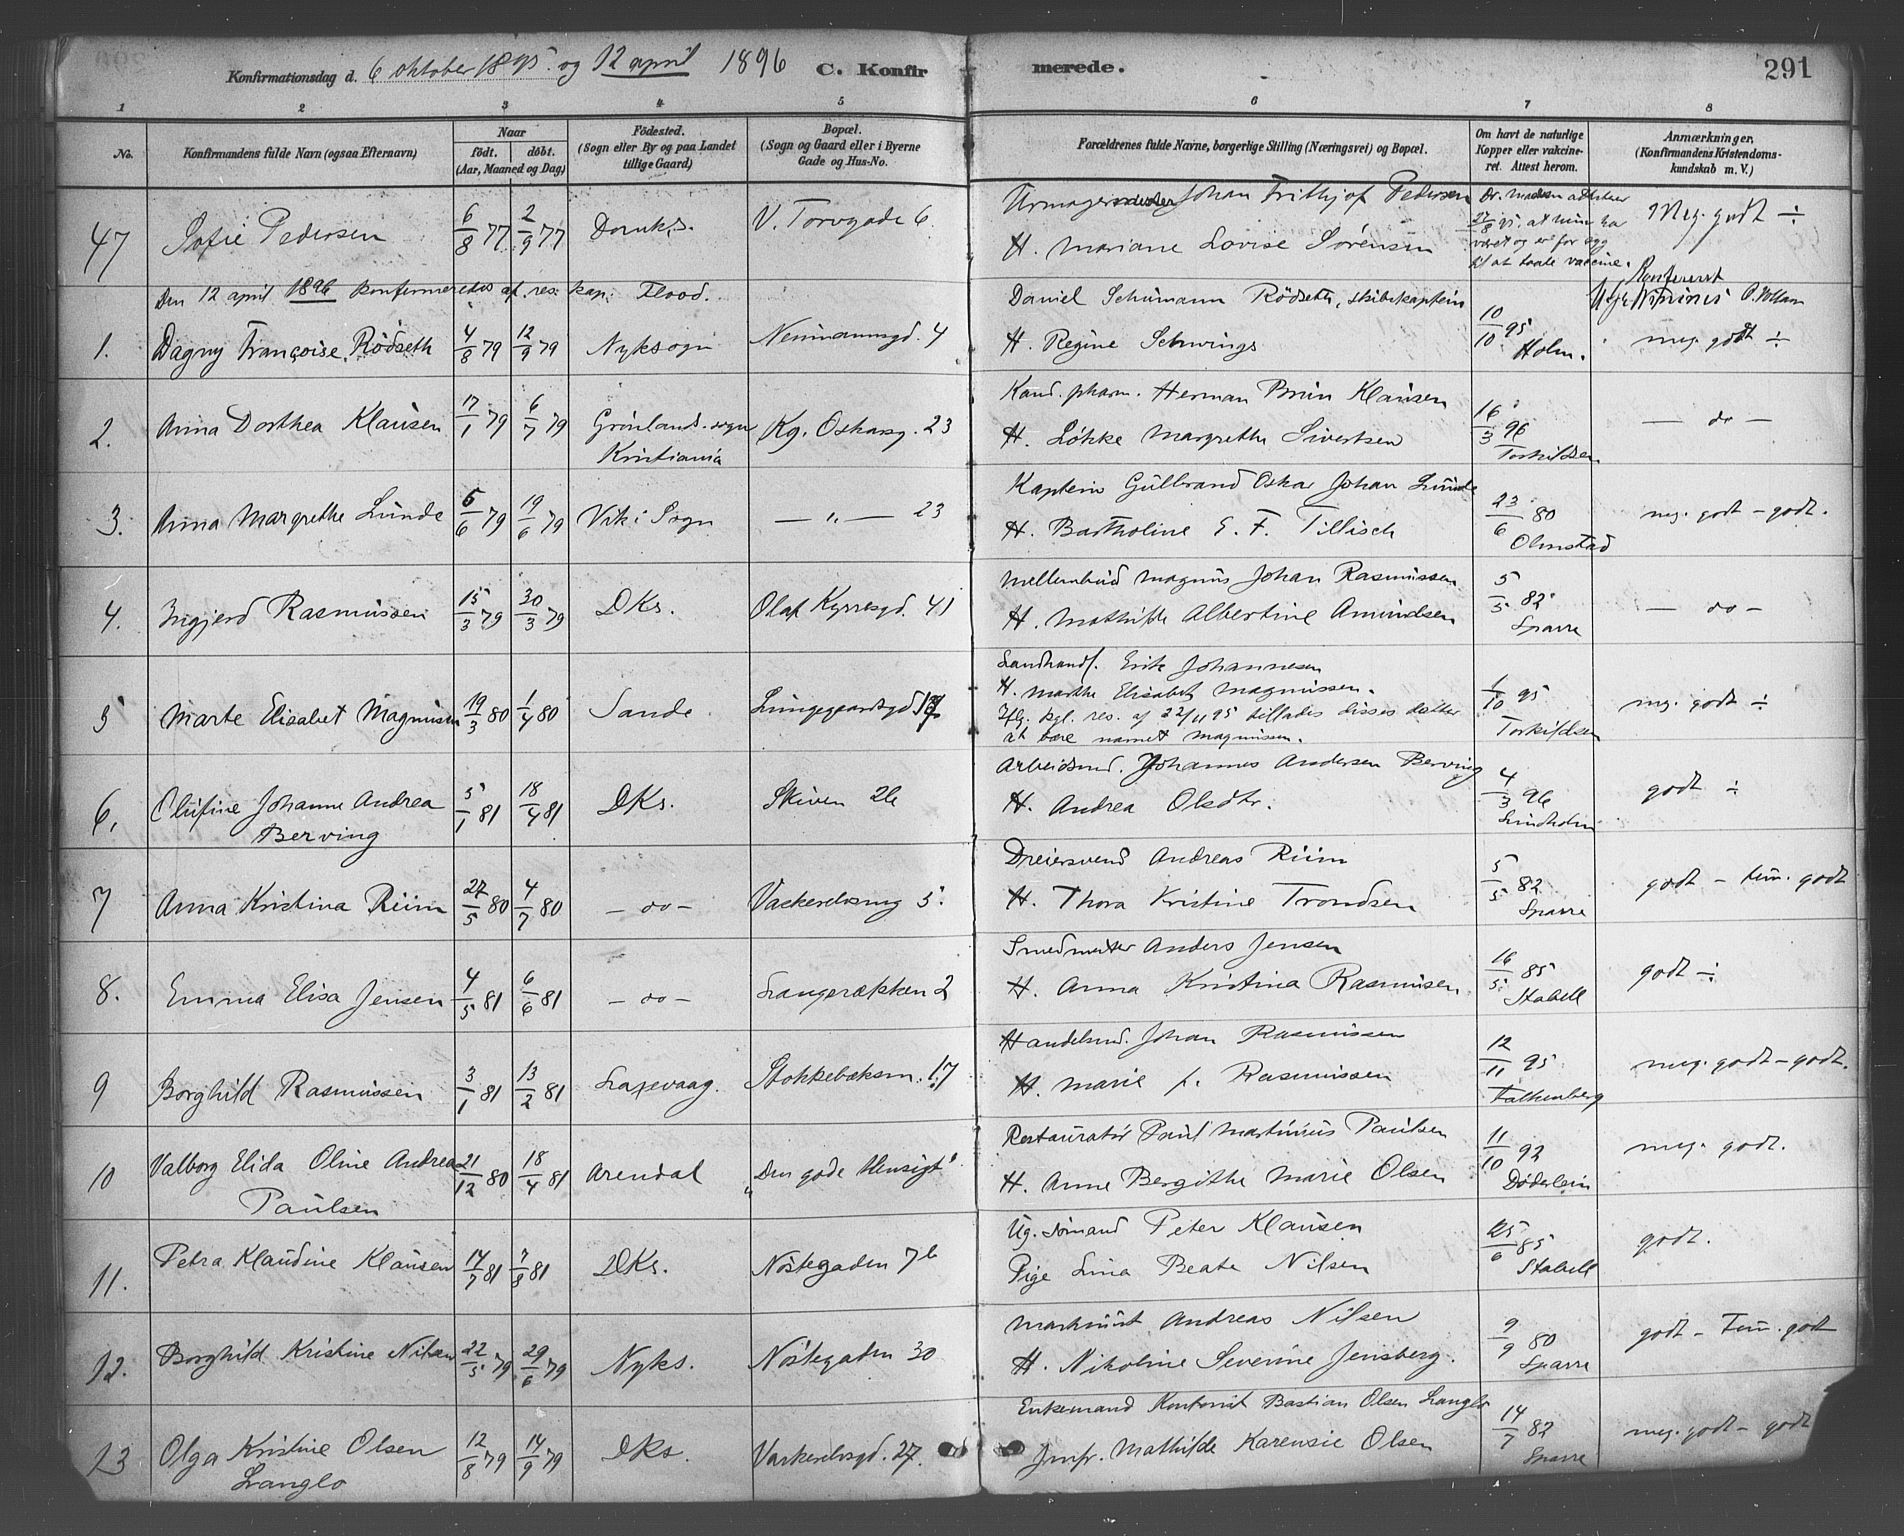 Konfirmationsdag d. 6 oktober 1895. og 12 april 1896 C. Konfirmerede. 291
1 2 3 4 5 6 7 8
No. Konfirmandens fulde Navn (ogsaa Efternavn) Naar født. døbt. (Aar, Maaned og Dag) Fødested. (Sogn eller By og paa Landet tillige Gaard) Bopæl. (Sogn og Gaard eller i Byerne Gade og Hus-No.) Forældrenes fulde Navne, borgerlige Stilling (Næringsvei) og Bopæl. Om havt de naturlige Kopper eller vakcineret. Attest herom. Anmærkninger, (Konfirmandens Kristendomskundskab m. V.)
47 Sofie Pedersen 6/8 77 2/9 77 Domks. V. Torvgade 6. Urmager Johan Frithjof Pedersen
H. Mariane Lovise Sørensen
Dr. Madsen attesterer 27/8 95. at hun har været og er for svag til at taale vaccine. Meg. godt ÷
Den 12 april 1896 konfirmeredes af res. kap. Flood.
1. Dagny Françoise Rödseth 4/8 79 12/9 79 Nyksogn Neumannsgd. 4 Daniel Schumann Rödseth, skibskaptein
H. Regine Schwings
10/10 95 Holm. meg. godt ÷
2. Anna Dorthea Klausen 17/1 79 6/7 79 Grønlands sogn Kristiania Kg. Oskarsg. 23 Kand. pharm. Herman Brun Klausen
H. Løkke Margrethe Sivertsen
16/3 96 Torkildsen — do —
3. Anna Margrethe Lunde 5/6 79 19/6 79 Vik i Sogn — " — 23 Kaptein Gulbrand Oskar Johan Lunde
H. Bartholine E. F. Tillisch
23/6 80 Olmstad meg. godt – godt.
4. Ingjerd Rasmussen 15/3 79 30/3 79 DKs. Olaf Kyrresgd. 41 Mellembud Magnus Johan Rasmussen
H. Mathilde Albertine Amundsen
5/5 82 Sparre — do —
5 Marte Elisabet Magnussen 19/3 80 1/4 80 Sande Lunggaardsgd Landhandl. Erik Johannesen
H. Marthe Elisabet Magnussen.
Iflg. kgl. res. af 22/11 95 tillades disses datter
at bære navnet Magnussen.
1/10 95 Torkildsen meg. godt ÷
6. Olufine Johanne Andrea Berving 5/1 81 18/4 81 DKs. Skiven 26 Arbeidsmd. Johannes Andersen Berving
H. Andrea Olsdtr.
4/3 96 Lindholm godt ÷
7 Anna Kristina Riim 27/5 80 4/7 80 — do — Vaskerelvsmg 5. Dreiersvend Andreas Riim
H. Thora Kristine Trondsen
5/5 82 Sparre godt – tem. godt
8. Emma Elisa Jensen 4/5 81 6/6 81 — do — Langerækken 2 Smedmester Anders Jensen
H. Anna Kristina Rasmussen
16/5 85 Stabell godt ÷
9 Borghild Rasmussen 3/1 81 13/2 81 Laxevaag. Stokkebæksm. 17 Handelsmd. Johan Rasmussen
H. Marie f. Rasmussen
12/11 95 Falkenberg meg. godt – godt.
10 Valborg Elida Oline Andrea Paulsen 21/12 80 18/4 81 Arendal „Den gode Hensigt" Restauratør Paul Martinius Paulsen
H. Anne Bergithe Marie Olsen
11/10 92 Døderlein meg. godt.
11. Petra Klaudine Klausen 14/7 81 7/8 81 DKs. Nøstegaden 7b Ug. Sømand Peter Klausen
Pige Lina Beate Nilsen
25/6 85 Stabell godt.
12. Borghild Kristine Nilsen 22/5 79 29/6 79 Nyks. Nøstegaden 30 Maskinist Andreas Nilsen
H. Nikoline Severine Jensberg.
9/9 80 Sparre godt – tem. godt
13 Olga Kristine Olsen Langlo 12/8 79 14/9 79 DKs. Vaskerelvsgd. 27. Enkemand Kontorist Bastian Olsen Langlo
Jmfr. Mathilde Karensie Olsen
14/7 82 Sparre meg. godt – godt